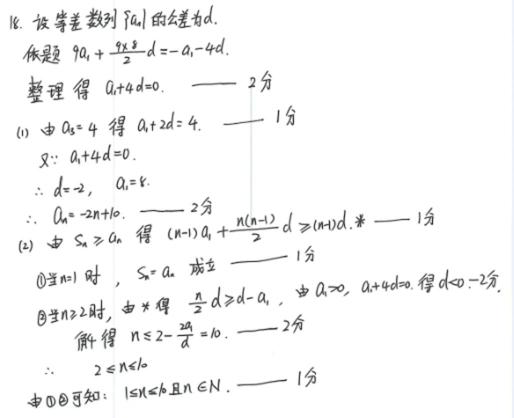 18. 设等差数列{aₙ}的公差为d.
依题 9a₁+(9×8)/2 d=-a₁-4d.
整理得 a₁+4d=0. —— 2分
(1) 由 a₃=4 得 a₁+2d=4. —— 1分
又∵ a₁+4d=0.
∴ d=-2, a₁=8.
∴ aₙ=-2n+10. —— 2分
(2) 由 Sₙ≥aₙ 得 (n-1)a₁+n(n-1)/2 d≥(n-1)d.* —— 1分
①当n=1时, Sₙ=aₙ 成立 —— 1分
②当n≥2时, 由*得 n/2 d≥d-a₁, 由a₁>0, a₁+4d=0.得d<0.-2分.
解得 n≤2-2a₁/d=10. —— 2分
∴ 2≤n≤10
由①②可知: 1≤n≤10且n∈N. —— 1分